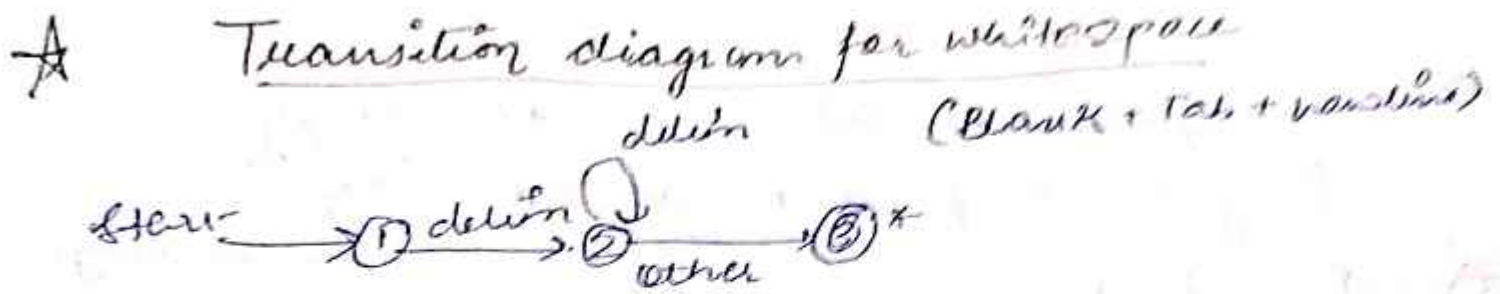 Transition diagram for whitespace
delim (Blank + Tab + newline)
Start 1 delim 2 other 3 *